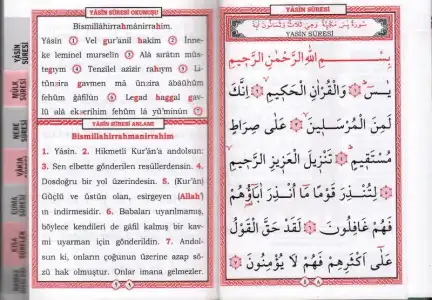 YÂSÎN SÛRESİ OKUNUŞU
Bismillâhirrahmânirrahim.
Yâsîn ① Vel gur'anil hakîm ② İnne-
ke leminel murselîn ③ Alâ sırâtın müs-
tegıym ④ Tenzîlel azîzir rahıym ⑤ Li-
tünzira gavmen mâ ünzira âbâühüm
fehüm gâfilûn ⑥ Legad haggal gav-
lü alâ ekserihim fehüm lâ yü'minûn ⑦
YÂSÎN SÛRESİ ANLAMI
Bismillahirrahmanirrahim
1. Yâsîn. 2. Hikmetli Kur'ân'a andolsun:
3. Sen elbette gönderilen resüllerdensin. 4.
Dosdoğru bir yol üzerindesin. 5. (Kur'ân)
Güçlü ve üstün olan, esirgeyen (Allah')
ın indirmesidir. 6. Babaları uyarılmamış,
böylece kendileri de gâfil kalmış bir kav-
mi uyarman için gönderildin. 7. Andol-
sun ki, onların çoğunun üzerine azap sö-
zü hak olmuştur. Onlar imana gelmezler.
YÂSÎN SÛRESİ
MÜLK SÛRESİ
NEBE SÛRESİ
VÂKIA
CUMA SÛRESİ
KISA SÛRELER
سُورَةُ يٰسٓ مَكِّيَّةٌ وَهِيَ ثَلَاثٌ وَثَمَانُونَ اٰيَةً
YÂSÎN SÛRESİ
بِسْمِ اللّٰهِ الرَّحْمٰنِ الرَّحِيمِ
يٰسٓ ۝ وَالْقُرْاٰنِ الْحَكِيمِ ۝ اِنَّكَ
لَمِنَ الْمُرْسَلِينَ ۝ عَلٰى صِرَاطٍ
مُسْتَقِيمٍ ۝ تَنْزِيلَ الْعَزِيزِ الرَّحِيمِ
۝ لِتُنْذِرَ قَوْمًا مَٓا اُنْذِرَ اٰبَٓاؤُهُمْ
فَهُمْ غَافِلُونَ ۝ لَقَدْ حَقَّ الْقَوْلُ
عَلٰٓى اَكْثَرِهِمْ فَهُمْ لَا يُؤْمِنُونَ ۝